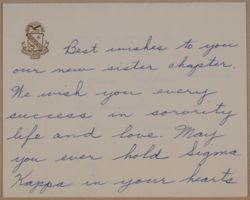 Best wishes to you
our new sister chapter.
We wish you every
success in sorority
life and love. May
you ever hold Sigma
Kappa in your hearts